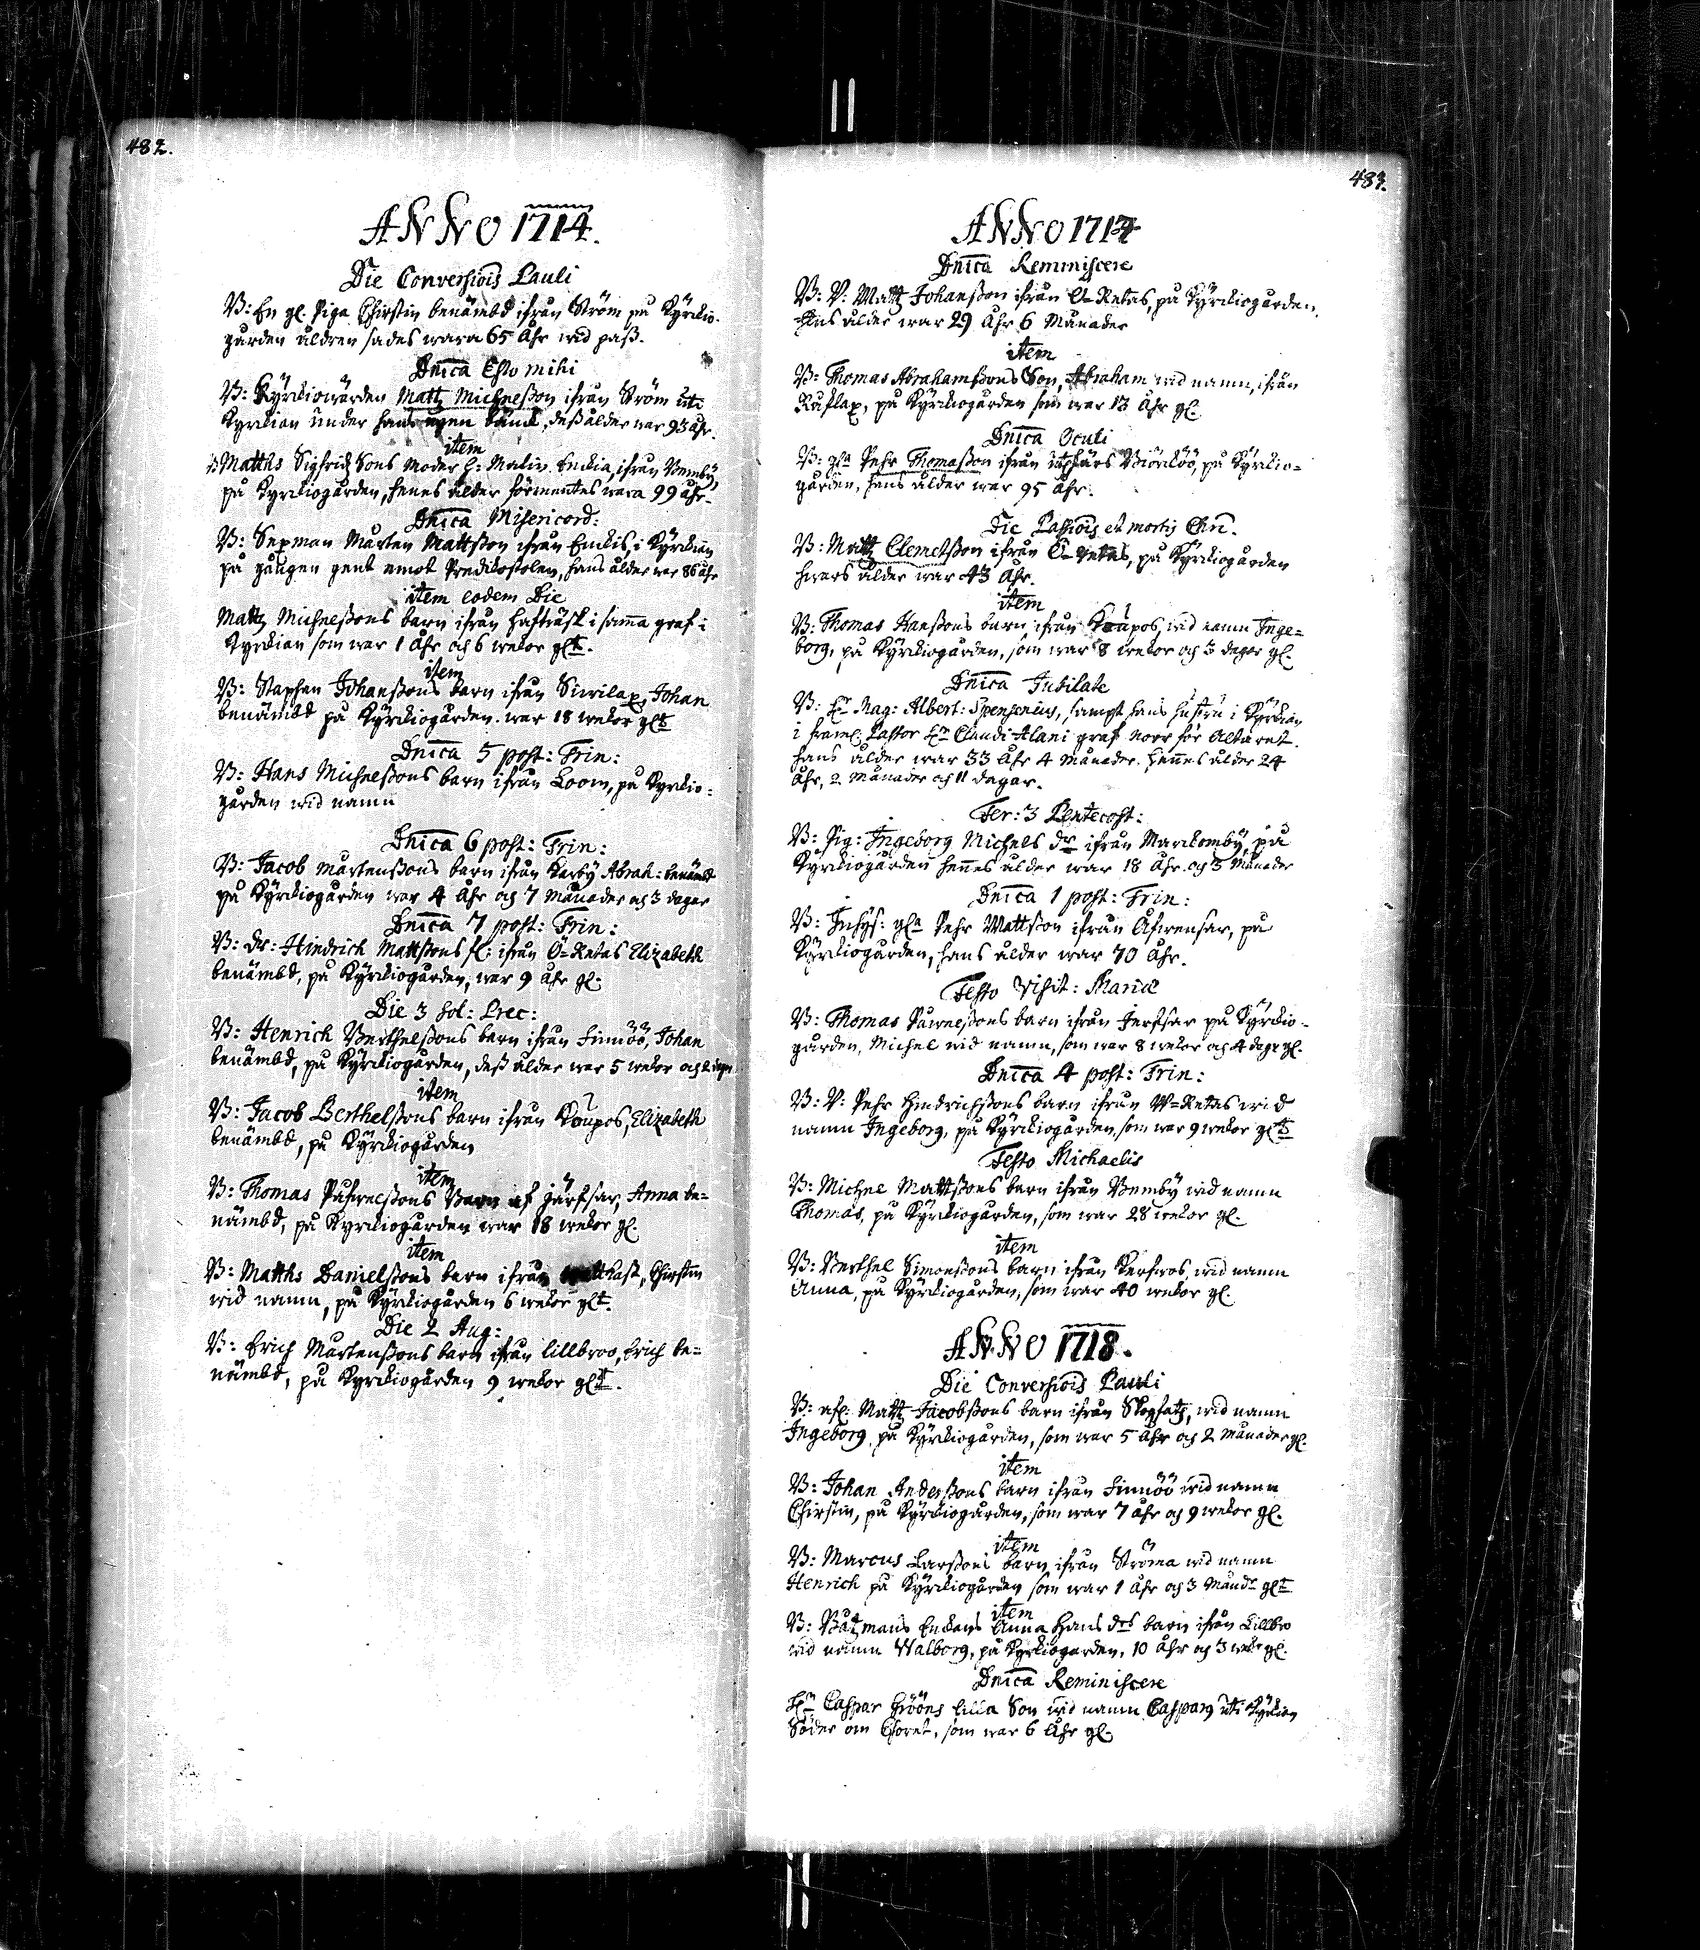 482.
ANNO 1714.
Die Conversiois Pauli
B: En gl. Piga Chirstin benämbd ifrån Ström på Kyrkio-
gården åldren sades wara 65 åhr wid paß.
Dnica Esto mihi
B: Kyrkiowärden Mattz Michneßon ifrån Ström uti
Kyrkian under hans egen bänck, deß ålder war 93 åhr.
item
B: Matths Sigfridz Sons Moder h: Malin Enckia, ifrån Bemböy,
på Kyrckiogården, henes ålder förmentes wara 99 åhr.
Dnica Misericord:
B: Sexman Mårten Mattsson ifrån Emkis, i Kyrckian
på gången gent emot Predikostolen, hans ålder war 86 åhr
item eodem Die
Mattz Michneßons barn ifrån Hafträsk i samma graf i
Kyrckian som war 1 Åhr och 6 wekor glt.
item
B: Staphan Johanßons barn ifrån Siwilax, Johan
benämbd på Kyrckiogården. war 18 wekor glt
Dnica 5 post: Trin:
B: Hans Michneßons barn ifrån Loom, på Kyrckio-
gården wid namn
Dnica 6 post: Trin:
B: Jacob Mårtenßons barn ifrån Karby Abrah: benämbd
på Kyrckiogården war 4 Åhr och 7 Månader och 3 dagar
Dnica 7 post: Trin:
B: Dr: Hindrich Mattßons fl: ifrån Ö-Retas Elizabeth
benämbd, på Kyrckiogården, war 9 åhr gl:
Die 3 Sol: Prec:
B: Henrich Berthelßons barn ifrån Finnöö, Johan
benämbd, på Kyrckiogården, deß ålder war 5 wekor och 2 dagar
item
B: Jacob Berthelßons barn ifrån Koupos, Elizabeth
benämbd, på Kyrckiogården
item
B: Thomas Påhwelßons Barn af Järfsar, Anna be-
nämbd, på Kyrckiogården war 18 wekor gl.
item
B: Matths Danielßons barn ifrån Chirstin
wid namn, på Kyrckiogården 6 wekor glt.
Die 2 Aug:
B: Erich Mårtenßons barn ifrån Lillbroo, Erich be-
nämbd, på Kyrckiogården 9 wekor glt.
483.
ANNO 1717
Dnica Reminiscere
B: V: Mattz Johanßon ifrån Ö-Retas, på Kyrckiogården.
Hans ålder war 29 Åhr 6 Månader
item
B: Thomas Abrahamßons Son, Abraham wid namn, ifrån
Räflax, på Kyrckiogården som war 13 Åhr gl.
Dnica Oculi
B: gla Pehr Thomaßon ifrån utskärs Biörköö, på Kyrckio-
gården, hans ålder war 95 Åhr.
Die Passiois et mortis Chri.
B: Mattz Clemetßon ifrån Ö-Retas, på Kyrckiogården
hwars ålder war 43 Åhr.
item
B: Thomas Hanßons barn ifrån Koupos, wid namn Inge-
borg, på Kyrckiogården, som war 8 wekor och 3 dagar gl.
Dnica Jubilate
B: Hr Mag: Albert: Spensenius, sampt hans hustru i Kyrckian
i framl: Pastor Hr Claudi Alani graf norr för Altaret.
hans ålder war 33 Åhr 4 Månader. hennes ålder 24
Åhr, 2 Månader och 11 dagar.
Fer: 3 Pentecost:
B: Pig: Ingeborg Michels dr ifrån Markomby, på
Kyrckiogården hennes ålder war 18 Åhr och 3 Månader
Dnica 1 post: Trin:
B: Inhys: gla Pehr Mattsson ifrån Åfwensar, på
Kyrckiogården, hans ålder war 70 Åhr.
Festo Visit: Mariæ
B: Thomas Påwelßons barn ifrån Jerfsar på Kyrckio-
gården, Michel wid namn, som war 8 wekor och 4 dagr gl.
Dnica 4 post: Trin:
B: V: Pehr Hindrichßons barn ifrån W-Retas wid
namn Ingeborg, på Kyrckiogården, som war 9 wekor glt
Festo Michaelis
B: Michel Mattßons barn ifrån Bemböy wid namn
Thomas, på Kyrckiogården, som war 28 wekor gl.
item
B: Berthel Simonßons barn ifrån Karfwos, wid namn
Anna, på Kyrckiogården, som war 40 wekor gl.
ANNO 1718.
Die Conversiois Pauli
B: afl: Mattz Jacobßons barn ifrån Skogsätz, wid namn
Ingeborg, på Kyrckiogården, som war 5 Åhr och 2 Månader gl.
item
B: Johan Anderßons barn ifrån Finnöö wid namn
Chirstin, på Kyrckiogården, som war 7 åhr och 9 wekor gl.
item
B: Marcus Larßons barn ifrån Ströma wid namn
Henrich på Kyrckiogården som war 1 Åhr och 3 Månadr glt
item
B: Båtzmans Enckans Anna Hans drs barn ifrån Lillbro
wid namn Walborg, på Kyrckiogården, 10 åhr och 3 wekr gl.
Dnica Reminiscere
Hr Caspar Grööns lilla Son wid namn Casparg uti Kyrkian
Söder om Choret, som war 6 Åhr gl.
FILM